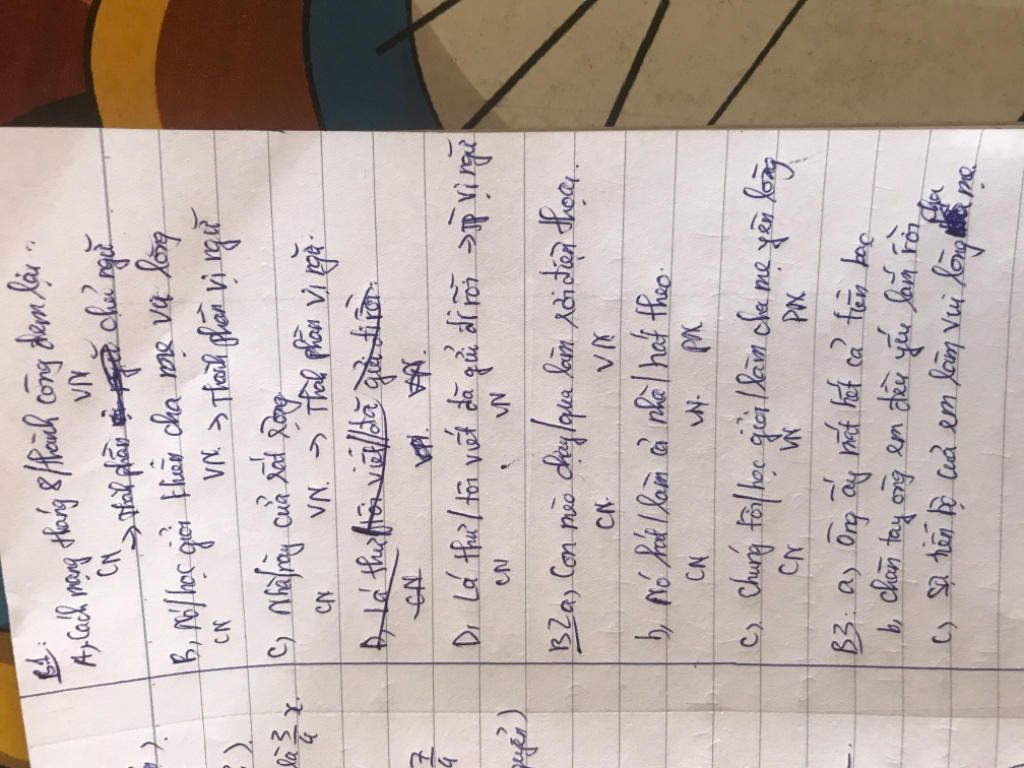 B1:
A, Cách mạng tháng 8/thành công đem lại..
CN VN
-> thành phần chủ ngữ
B, Nó/học giỏi khiến cha mẹ vui lòng
CN VN -> Thành phần vị ngữ
C, Nhà/này cửa sắt rộng
CN VN -> Thành phần vị ngữ.
D, Lá thư/tôi viết/đã gửi đi rồi.
CN VN VN.
D, Lá thư/ tôi viết đã gửi đi rồi -> TP vị ngữ
CN VN
B2 a, Con mèo chạy/qua làm rơi điện thoại.
CN VN
b, Nó hát/làm cả nhà/hát theo.
CN VN PN
c, Chúng tôi/học giỏi/làm cha mẹ yên lòng
CN VN PN
B3: a, Ông ấy mất hết cả tiền bạc
b, chân tay ông em đều yếu lắm rồi
c, Sự tiến bộ của em làm vui lòng cha mẹ
là 3/4 x.
7/4